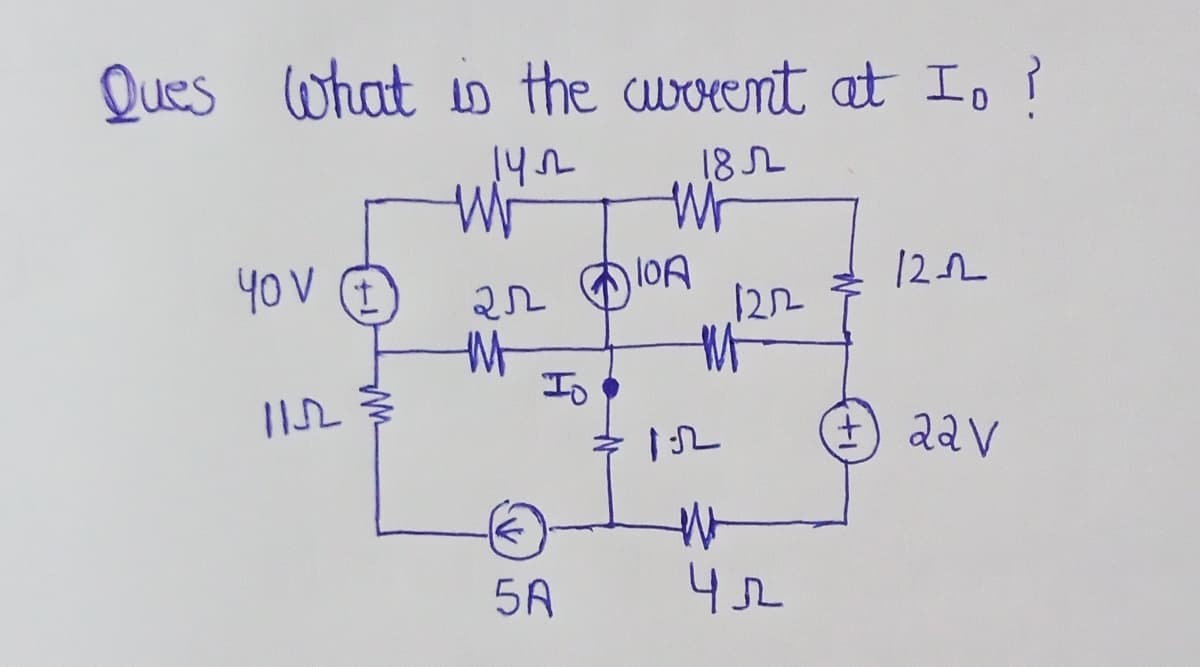 Ques What is the current at I₀ ?
14Ω 18Ω
40V + - 2Ω 10A 12Ω 12Ω
I₀
11Ω 1Ω + - 22V
5A 4Ω